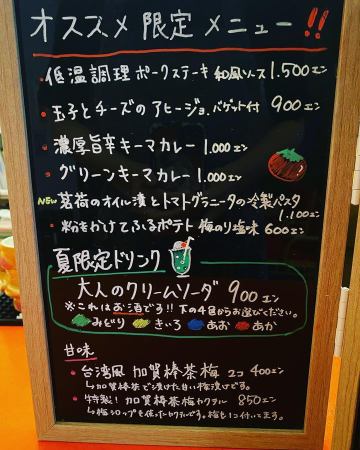 オススメ 限定 メニュー!!
・低温調理 ポークステーキ 和風ソース 1.500エン
・玉子とチーズの アヒージョ.バゲット付 900エン
・濃厚旨辛キーマカレー 1.000エン
・グリーンキーマカレー 1.000エン
NEW 茗荷のオイル漬とトマトグラニータの冷製パスタ 1.100エン
・粉をかけてふるポテト 梅のり塩味 600エン
夏限定ドリンク
大人のクリームソーダ 900エン
※これはお酒です!! 下の4色からお選びください。
みどり きいろ あお あか
甘味
・台湾風 加賀棒茶梅 2コ 400エン
↳加賀棒茶で漬けた甘い梅漬けです。
・特製! 加賀棒茶梅カクテル 850エン
↳梅シロップを使ったカクテルです。梅も1コ付いてます。